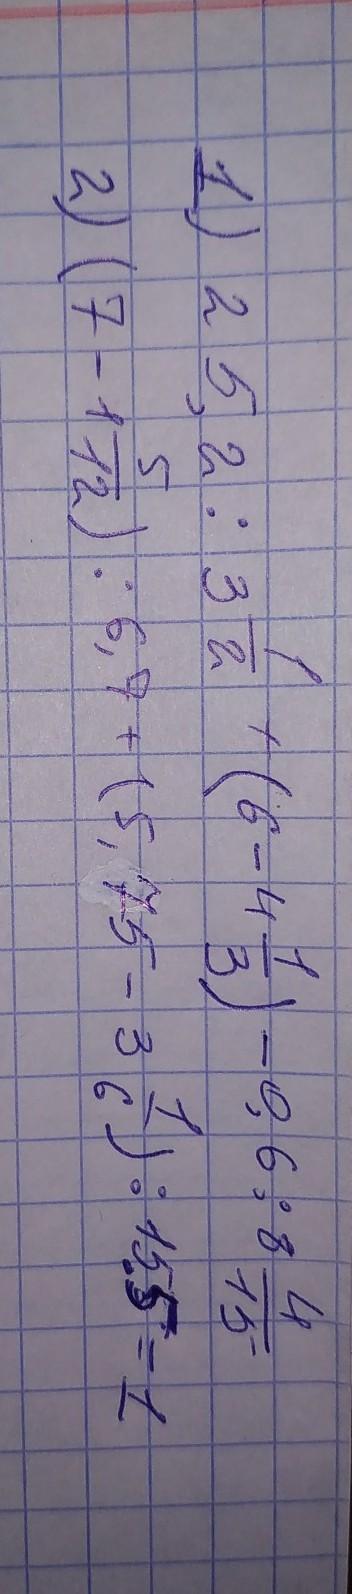 1) 25,2 : 3 1/2 + (6 - 4 1/3) - 0,6 : 8 4/15
2) (7 - 1 5/12) : 6,7 + (5,75 - 3 1/6) : 15.5 = 1